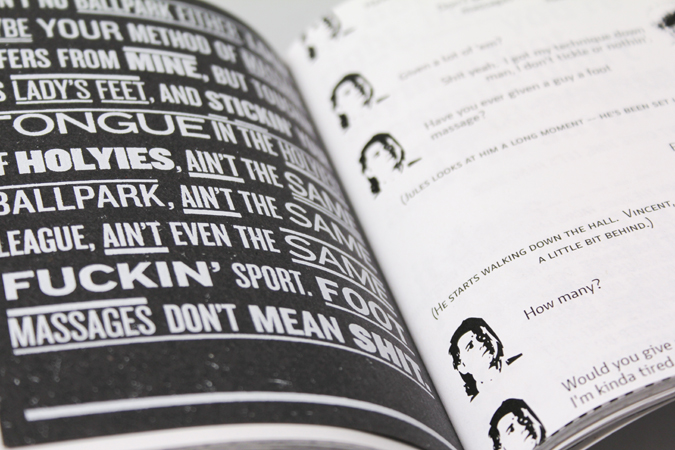 NO BALLPARK EITHER.
YOUR METHOD OF
FROM MINE, BUT
LADY'S FEET, AND STICKIN'
TONGUE IN THE
HOLYIES, AIN'T THE SAME
BALLPARK, AIN'T THE SAME
LEAGUE, AIN'T EVEN THE SAME
FUCKIN' SPORT. FOOT
MASSAGES DON'T MEAN SHIT.
Given a lot of 'em?
Shit yeah, I got my technique down
man, I don't tickle or nothin'
Have you ever given a guy a foot
massage?
(JULES LOOKS AT HIM A LONG MOMENT – HE'S BEEN SET
(HE STARTS WALKING DOWN THE HALL. VINCENT,
A LITTLE BIT BEHIND.)
How many?
Would you give
I'm kinda tired